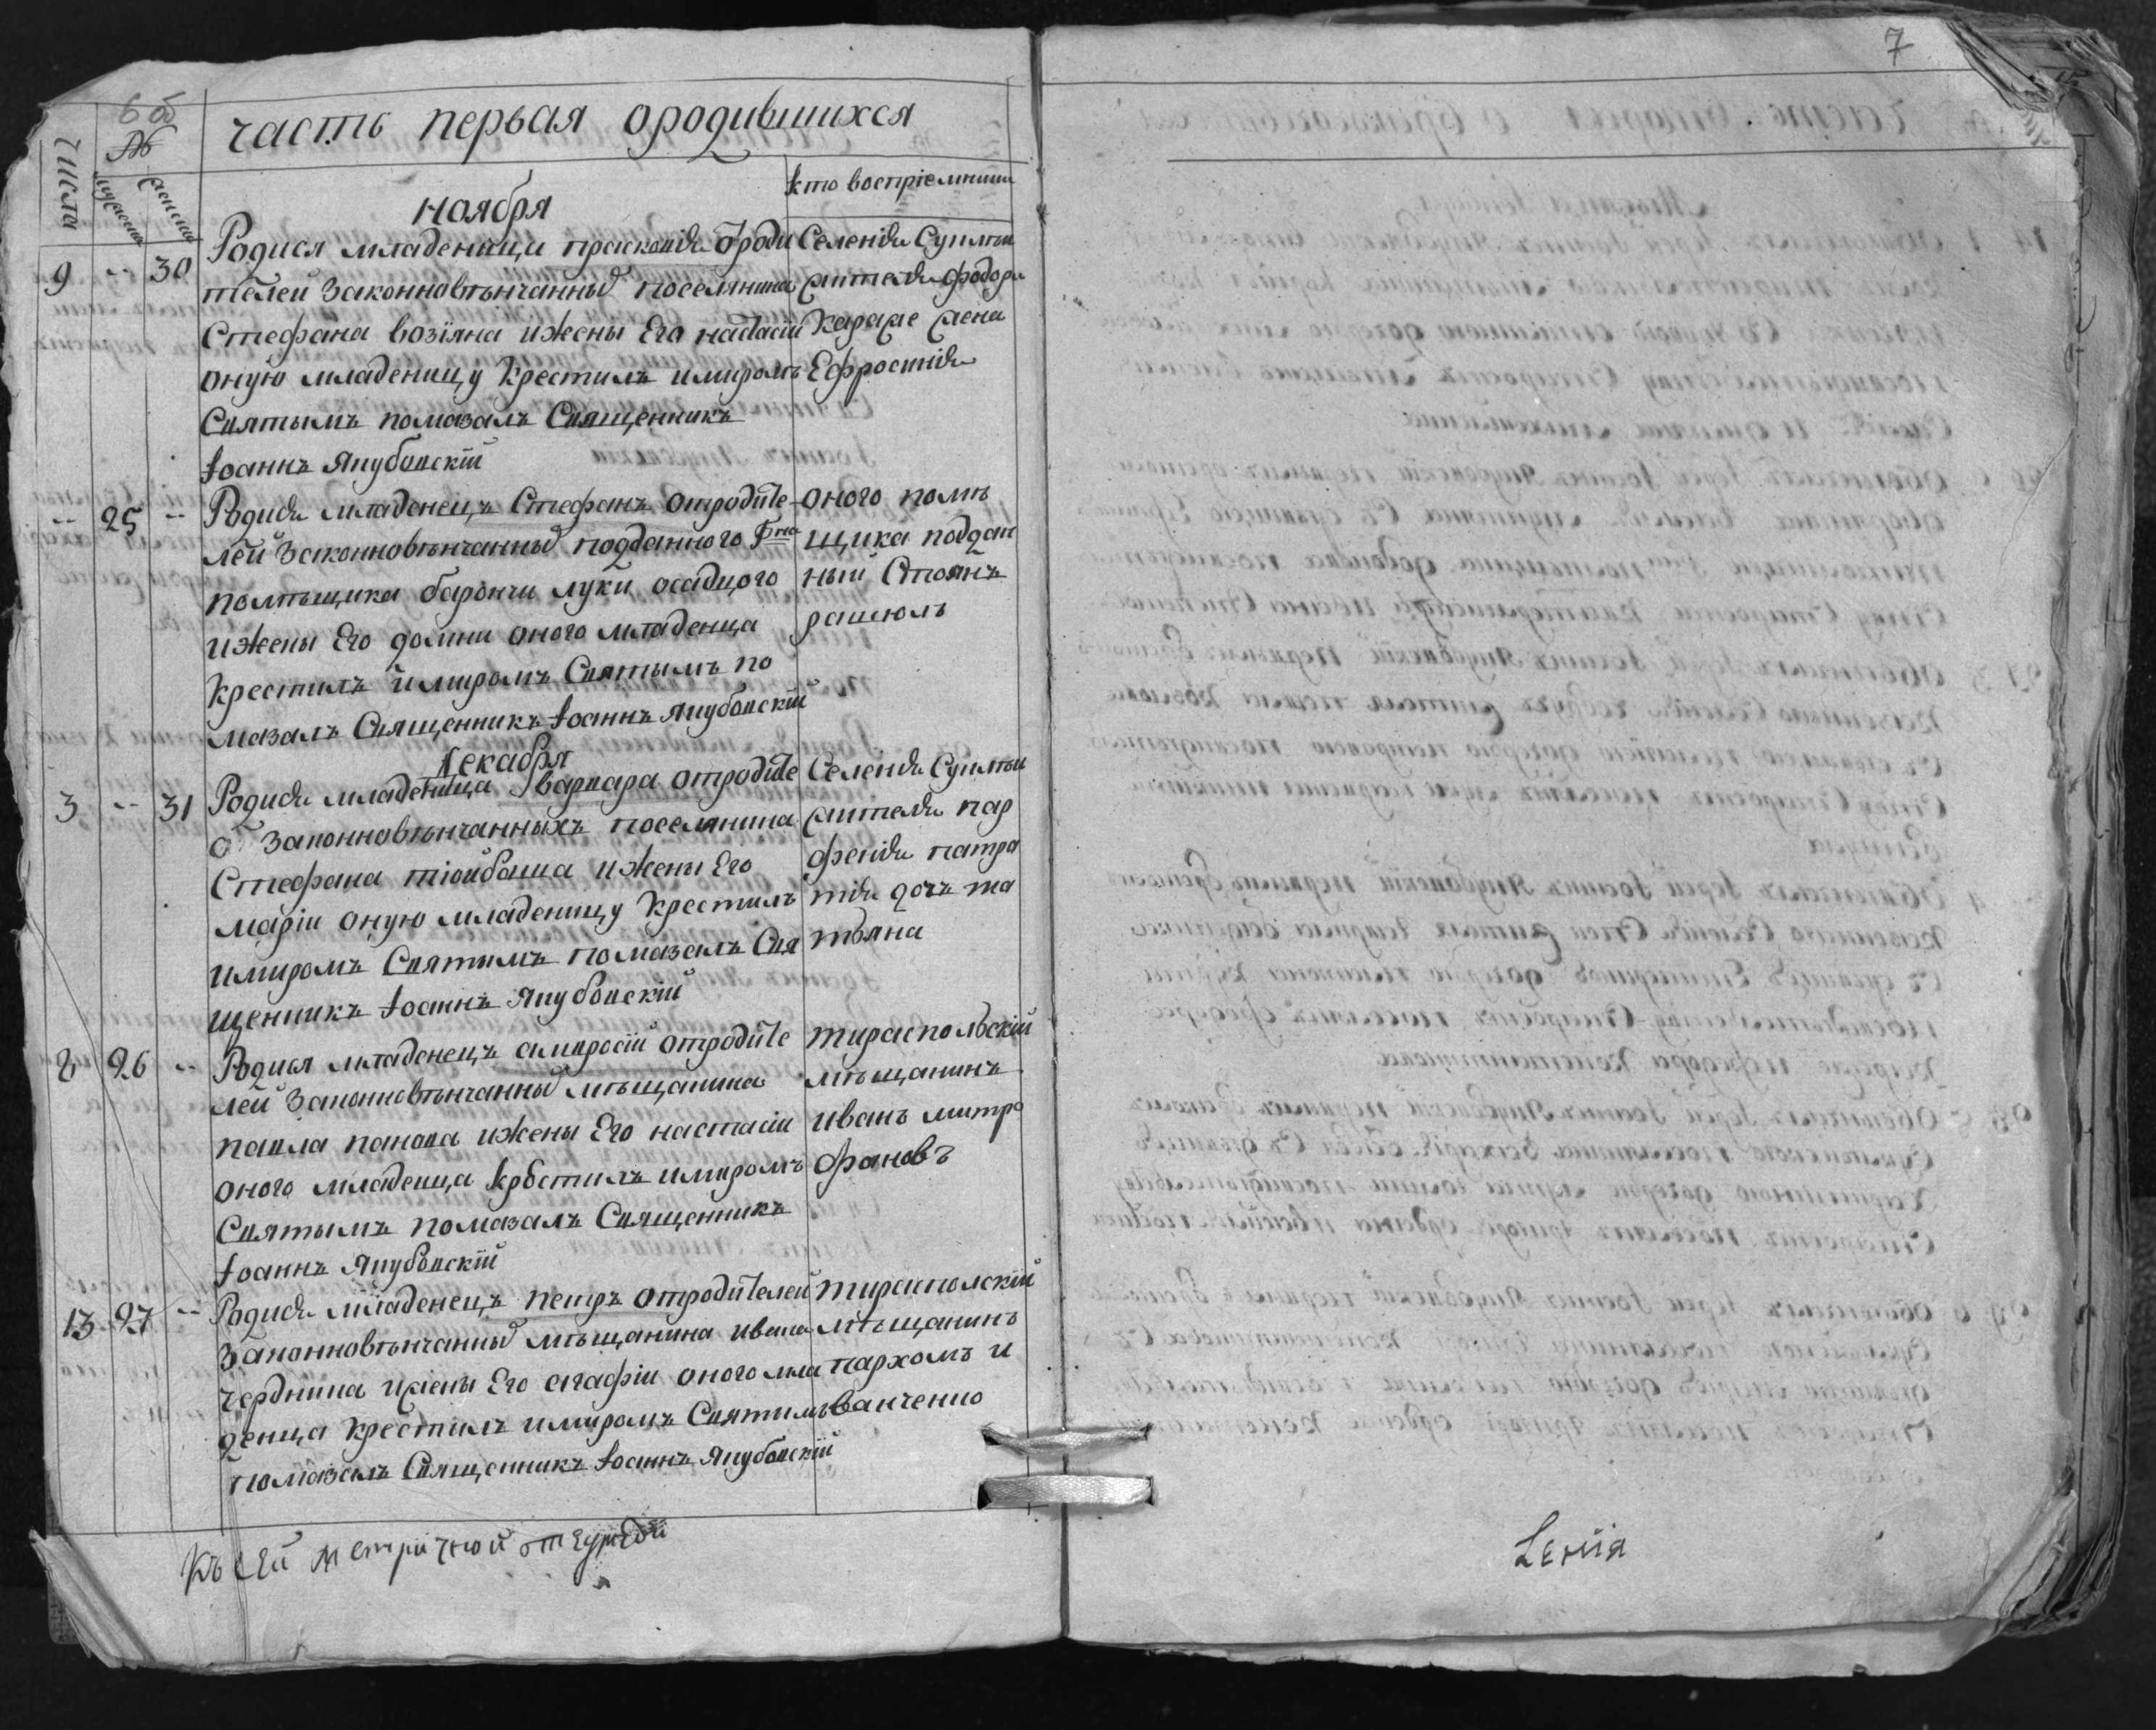 6 об
7
часть первая ородившихся
числа
№
мужеска
женска
кто восприемники
ноября
9 -- 30
Родися младеница прасковія ѿроди
телей законновѣнчанныхъ поселянина
Стефана возіяна ижены Его настасіи
оную младеницу крестилъ имиромъ
Святымъ помазалъ Священникъ
Іоаннъ Якубовскій
Селенія Суклеи
жителя фодора
Караже жена
Ефросинія
-- 25 --
Родися младенецъ Стефанъ отродите
лей законновѣнчанныхъ подданного Гна
помѣщика барончи луки осадцого
ижены Его домни оного младенца
крестилъ имиромъ Святымъ по
мазалъ Священникъ Іоаннъ Якубовскій
оного помѣ
щика поддан
ный Стоянъ
рашколъ
декабря
3 -- 31
Родися младеница варвара отродите
законновѣнчанныхъ поселянина
Стефана ижены Его
маріи оную младеницу крестилъ
имиромъ Святымъ помазалъ Свя
щенникъ Іоаннъ Якубовскій
Селенія Суклеи
жителя пар
фенія патра
тія дочь та
тьяна
8 26 --
Родися младенецъ амвросій отродите
лей законновѣнчанныхъ мѣщанина
павла панова ижены Его настасіи
оного младенца крестилъ имиромъ
Святымъ помазалъ Священникъ
Іоаннъ Якубовскій
тираспольскій
мѣщанинъ
иванъ митро
фановъ
13 27 --
Родися младенецъ петръ отродителей
законновѣнчанныхъ мѣщанина ивана
ижены Его агафіи оного мла
денца крестилъ имиромъ Святымъ
помазалъ Священникъ Іоаннъ Якубовскій
тираспольскій
мѣщанинъ
пархомъ и
ванченко
Къ сей метричной